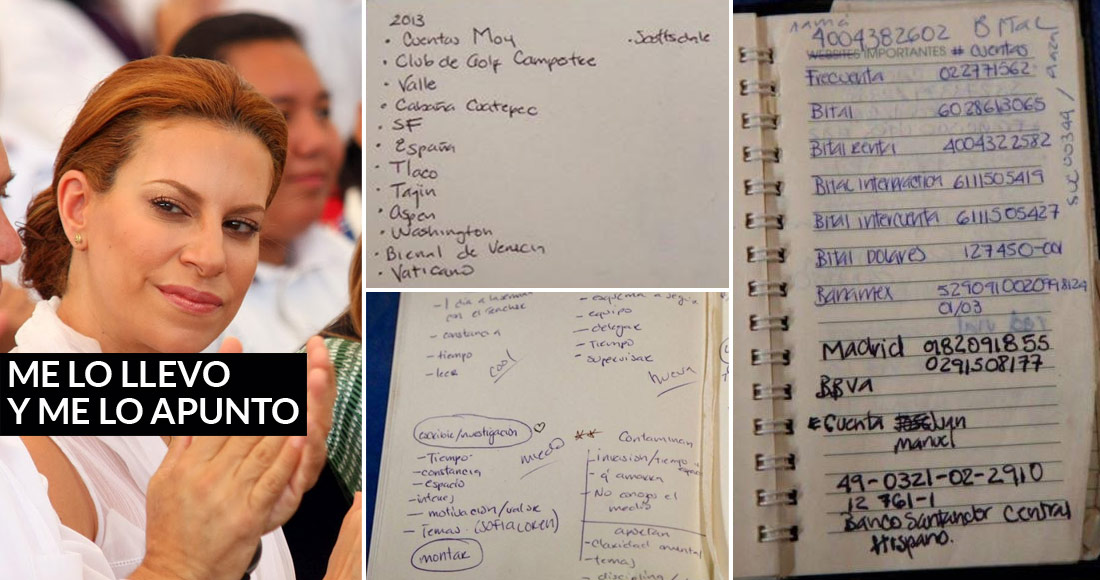 ME LO LLEVO
Y ME LO APUNTO
2013
• Cuentas Moy
• Scottsdale
• Club de Golf Campestre
• Valle
• Cabaña Coatepec
• SF
• España
• Tlaco
• Tajin
• Aspen
• Washington
• Bienal de Venecia
• Vaticano
- constancia
- tiempo
- leer
cool
- esquema a seguir
- equipo
- delegar
- Tiempo
- supervisar
hueva
escribir/investigación
miedo
- Tiempo
- constancia
- espacio
- interes
- motivación/valor
- Temas (Sofia Loren)
montar
** Contaminan
- invasión/tiempo
espacio
- q' amarra
- No conozco el
medio
aportan
- Claridad mental
- temas
- disciplina/
mamá
4004382602 B Mac
WEBSITES IMPORTANTES # cuentas
Frecuenta 022771562
Bital 6028613065
Bital renta 4004322582
Bital interaction 6111505419
Bital intercuenta 6111505427
Bital Dolares 127450-001
Banamex 5290910020998124
01/03
SUC 00344 /
Madrid 0182091855
0291508177
BBVA
# Cuenta
Manuel
49-0321-02-2910
12 761-1
Banco Santander Central
Hispano.